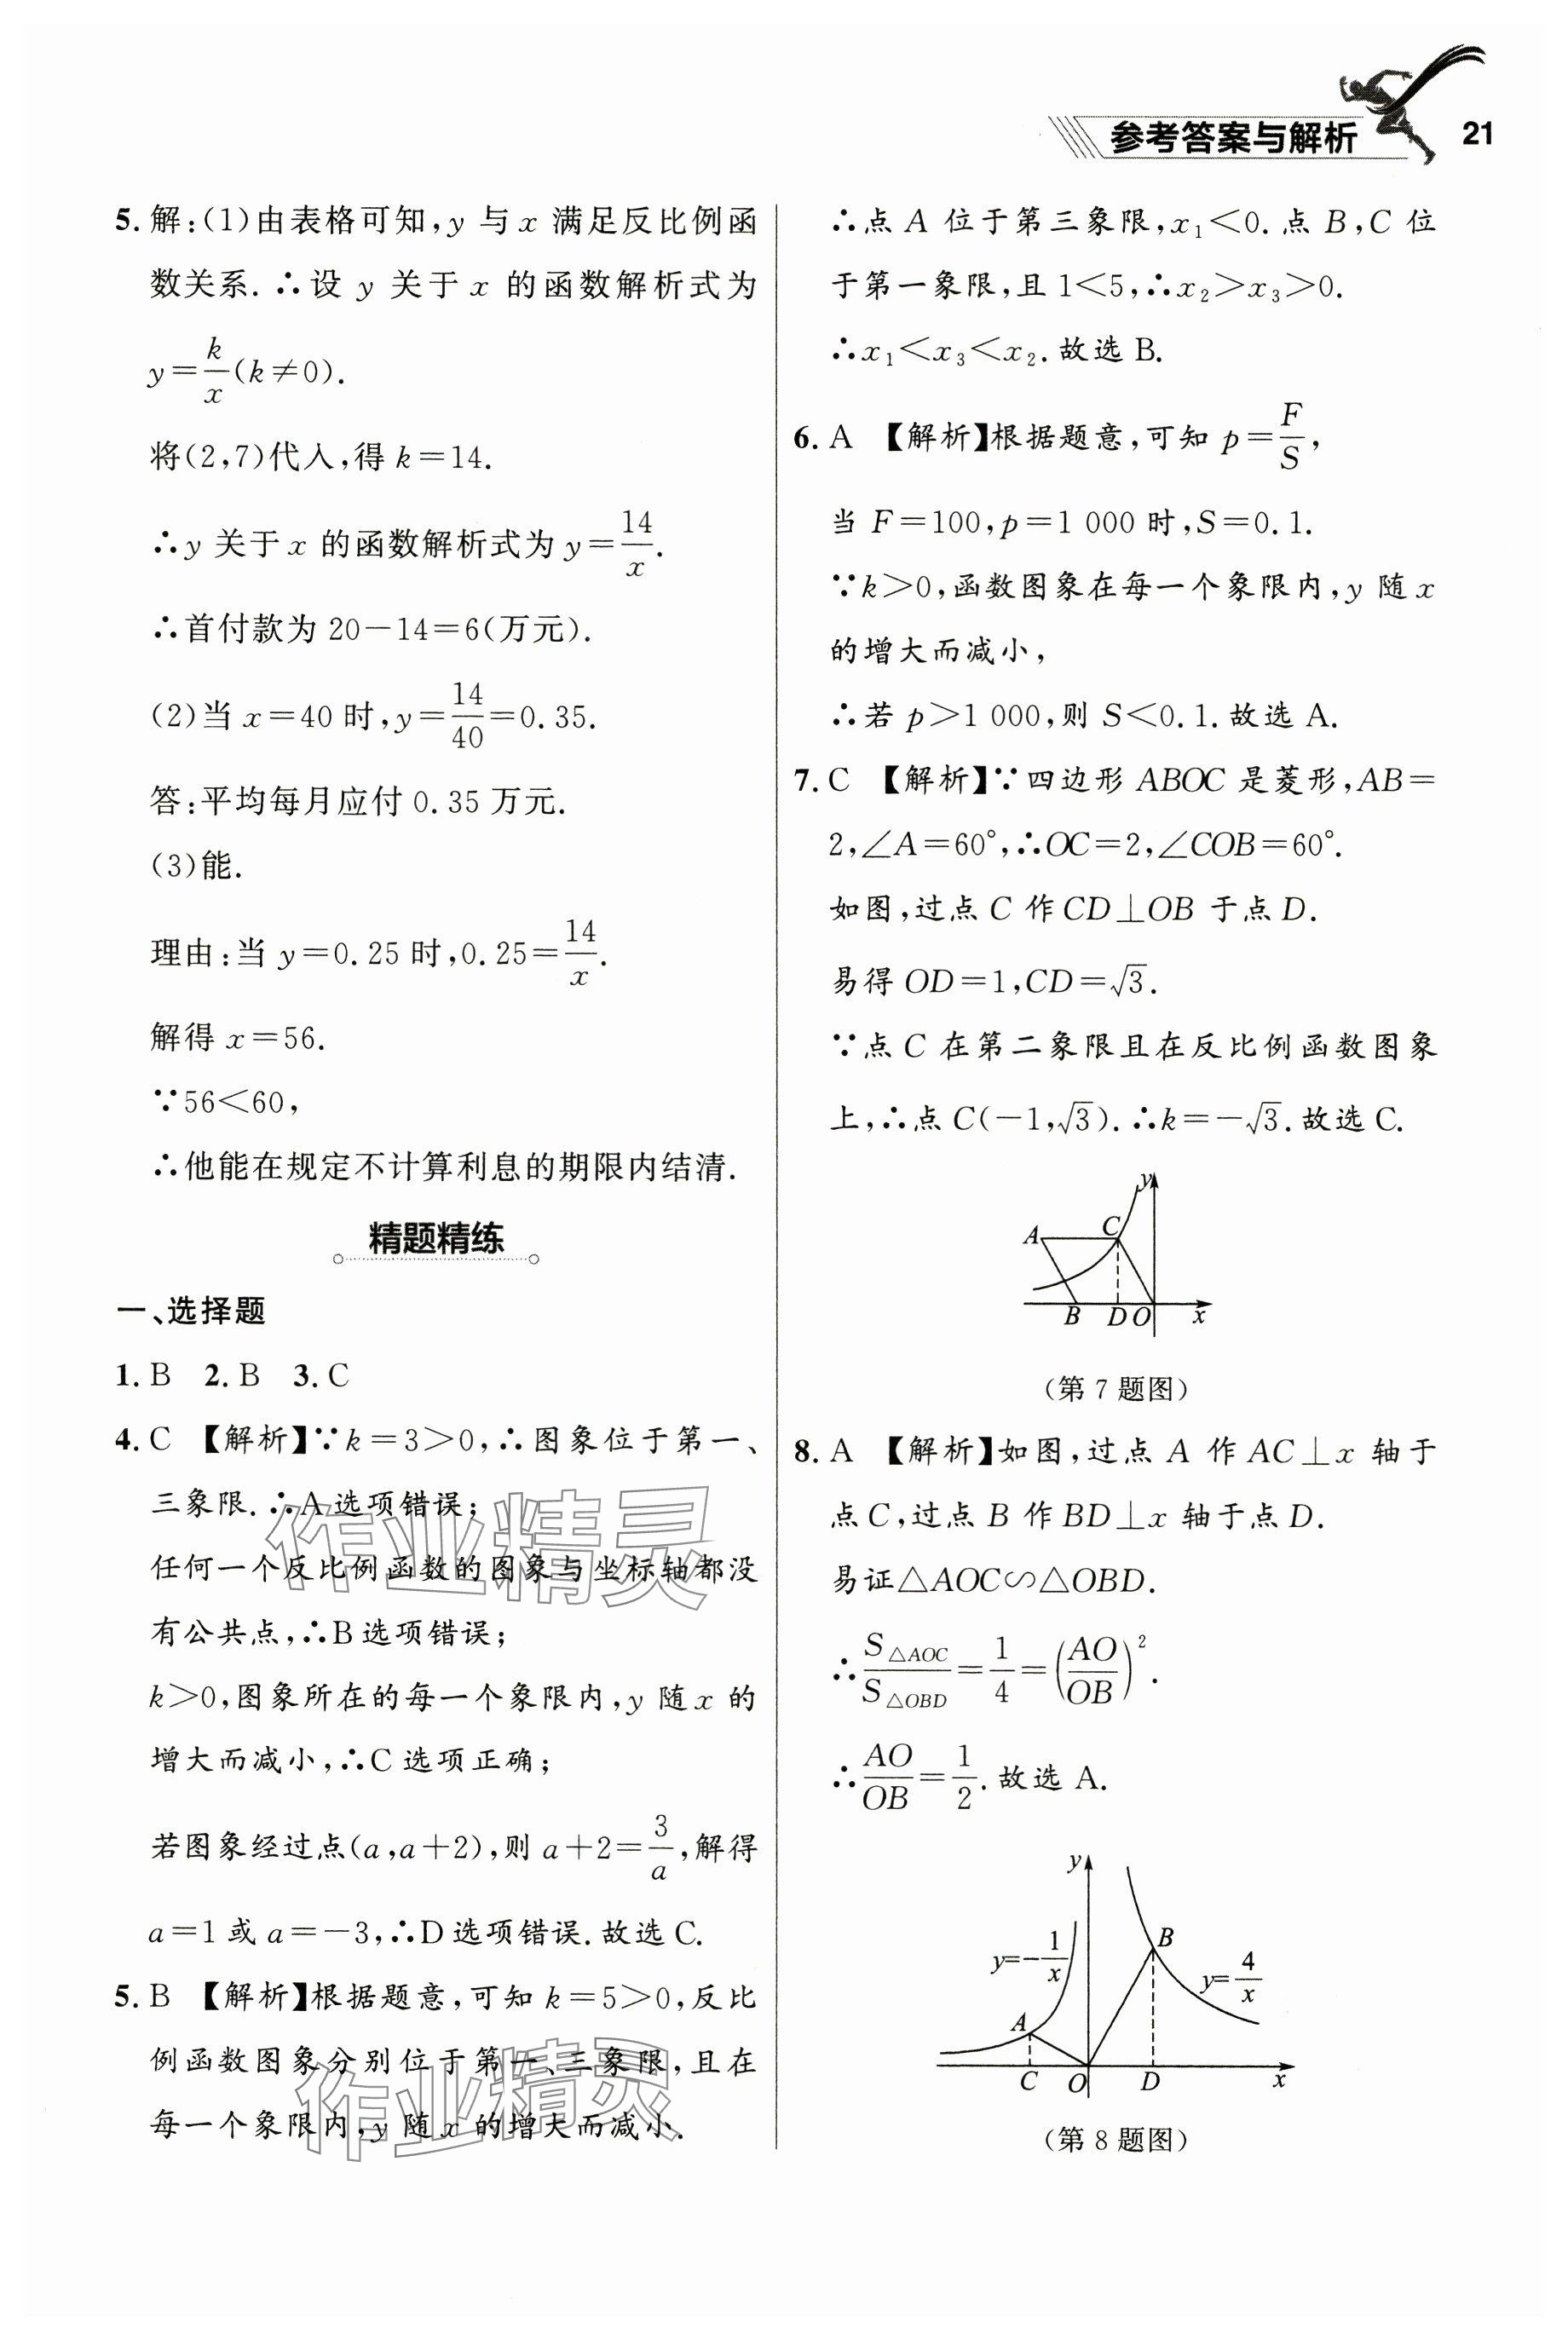 参考答案与解析 21
5. 解:(1)由表格可知,y 与 x 满足反比例函
数关系. ∴设 y 关于 x 的函数解析式为
y=k/x(k≠0).
将(2,7)代入,得 k=14.
∴y 关于 x 的函数解析式为 y=14/x.
∴首付款为 20-14=6(万元).
(2)当 x=40 时,y=14/40=0.35.
答:平均每月应付 0.35 万元.
(3)能.
理由:当 y=0.25 时,0.25=14/x.
解得 x=56.
∵56<60,
∴他能在规定不计算利息的期限内结清.
精题精练
一、选择题
1. B 2. B 3. C
4. C 【解析】∵k=3>0,∴图象位于第一、
三象限.∴A 选项错误;
任何一个反比例函数的图象与坐标轴都没
有公共点,∴B 选项错误;
k>0,图象所在的每一个象限内,y 随 x 的
增大而减小,∴C 选项正确;
若图象经过点(a,a+2),则 a+2=3/a,解得
a=1 或 a=-3,∴D 选项错误.故选 C.
5. B 【解析】根据题意,可知 k=5>0,反比
例函数图象分别位于第一、三象限,且在
每一个象限内,y 随 x 的增大而减小.
∴点 A 位于第三象限,x₁<0.点 B,C 位
于第一象限,且 1<5,∴x₂>x₃>0.
∴x₁<x₃<x₂.故选 B.
6. A 【解析】根据题意,可知 p=F/S,
当 F=100,p=1 000 时,S=0.1.
∵k>0,函数图象在每一个象限内,y 随 x
的增大而减小,
∴若 p>1 000,则 S<0.1.故选 A.
7. C 【解析】∵四边形 ABOC 是菱形,AB=
2,∠A=60°,∴OC=2,∠COB=60°.
如图,过点 C 作 CD⊥OB 于点 D.
易得 OD=1,CD=√3.
∵点 C 在第二象限且在反比例函数图象
上,∴点 C(-1,√3).∴k=-√3.故选 C.
y
A C
B D O x
(第 7 题图)
8. A 【解析】如图,过点 A 作 AC⊥x 轴于
点 C,过点 B 作 BD⊥x 轴于点 D.
易证△AOC∽△OBD.
∴S△AOC/S△OBD=1/4=(AO/OB)².
∴AO/OB=1/2.故选 A.
y
y=-1/x B y=4/x
A
C O D x
(第 8 题图)
作业精灵
作业精灵